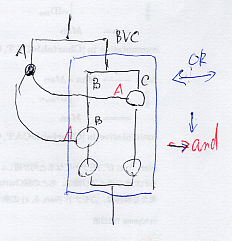 BVC
A
OR
B C
A
B
A
and